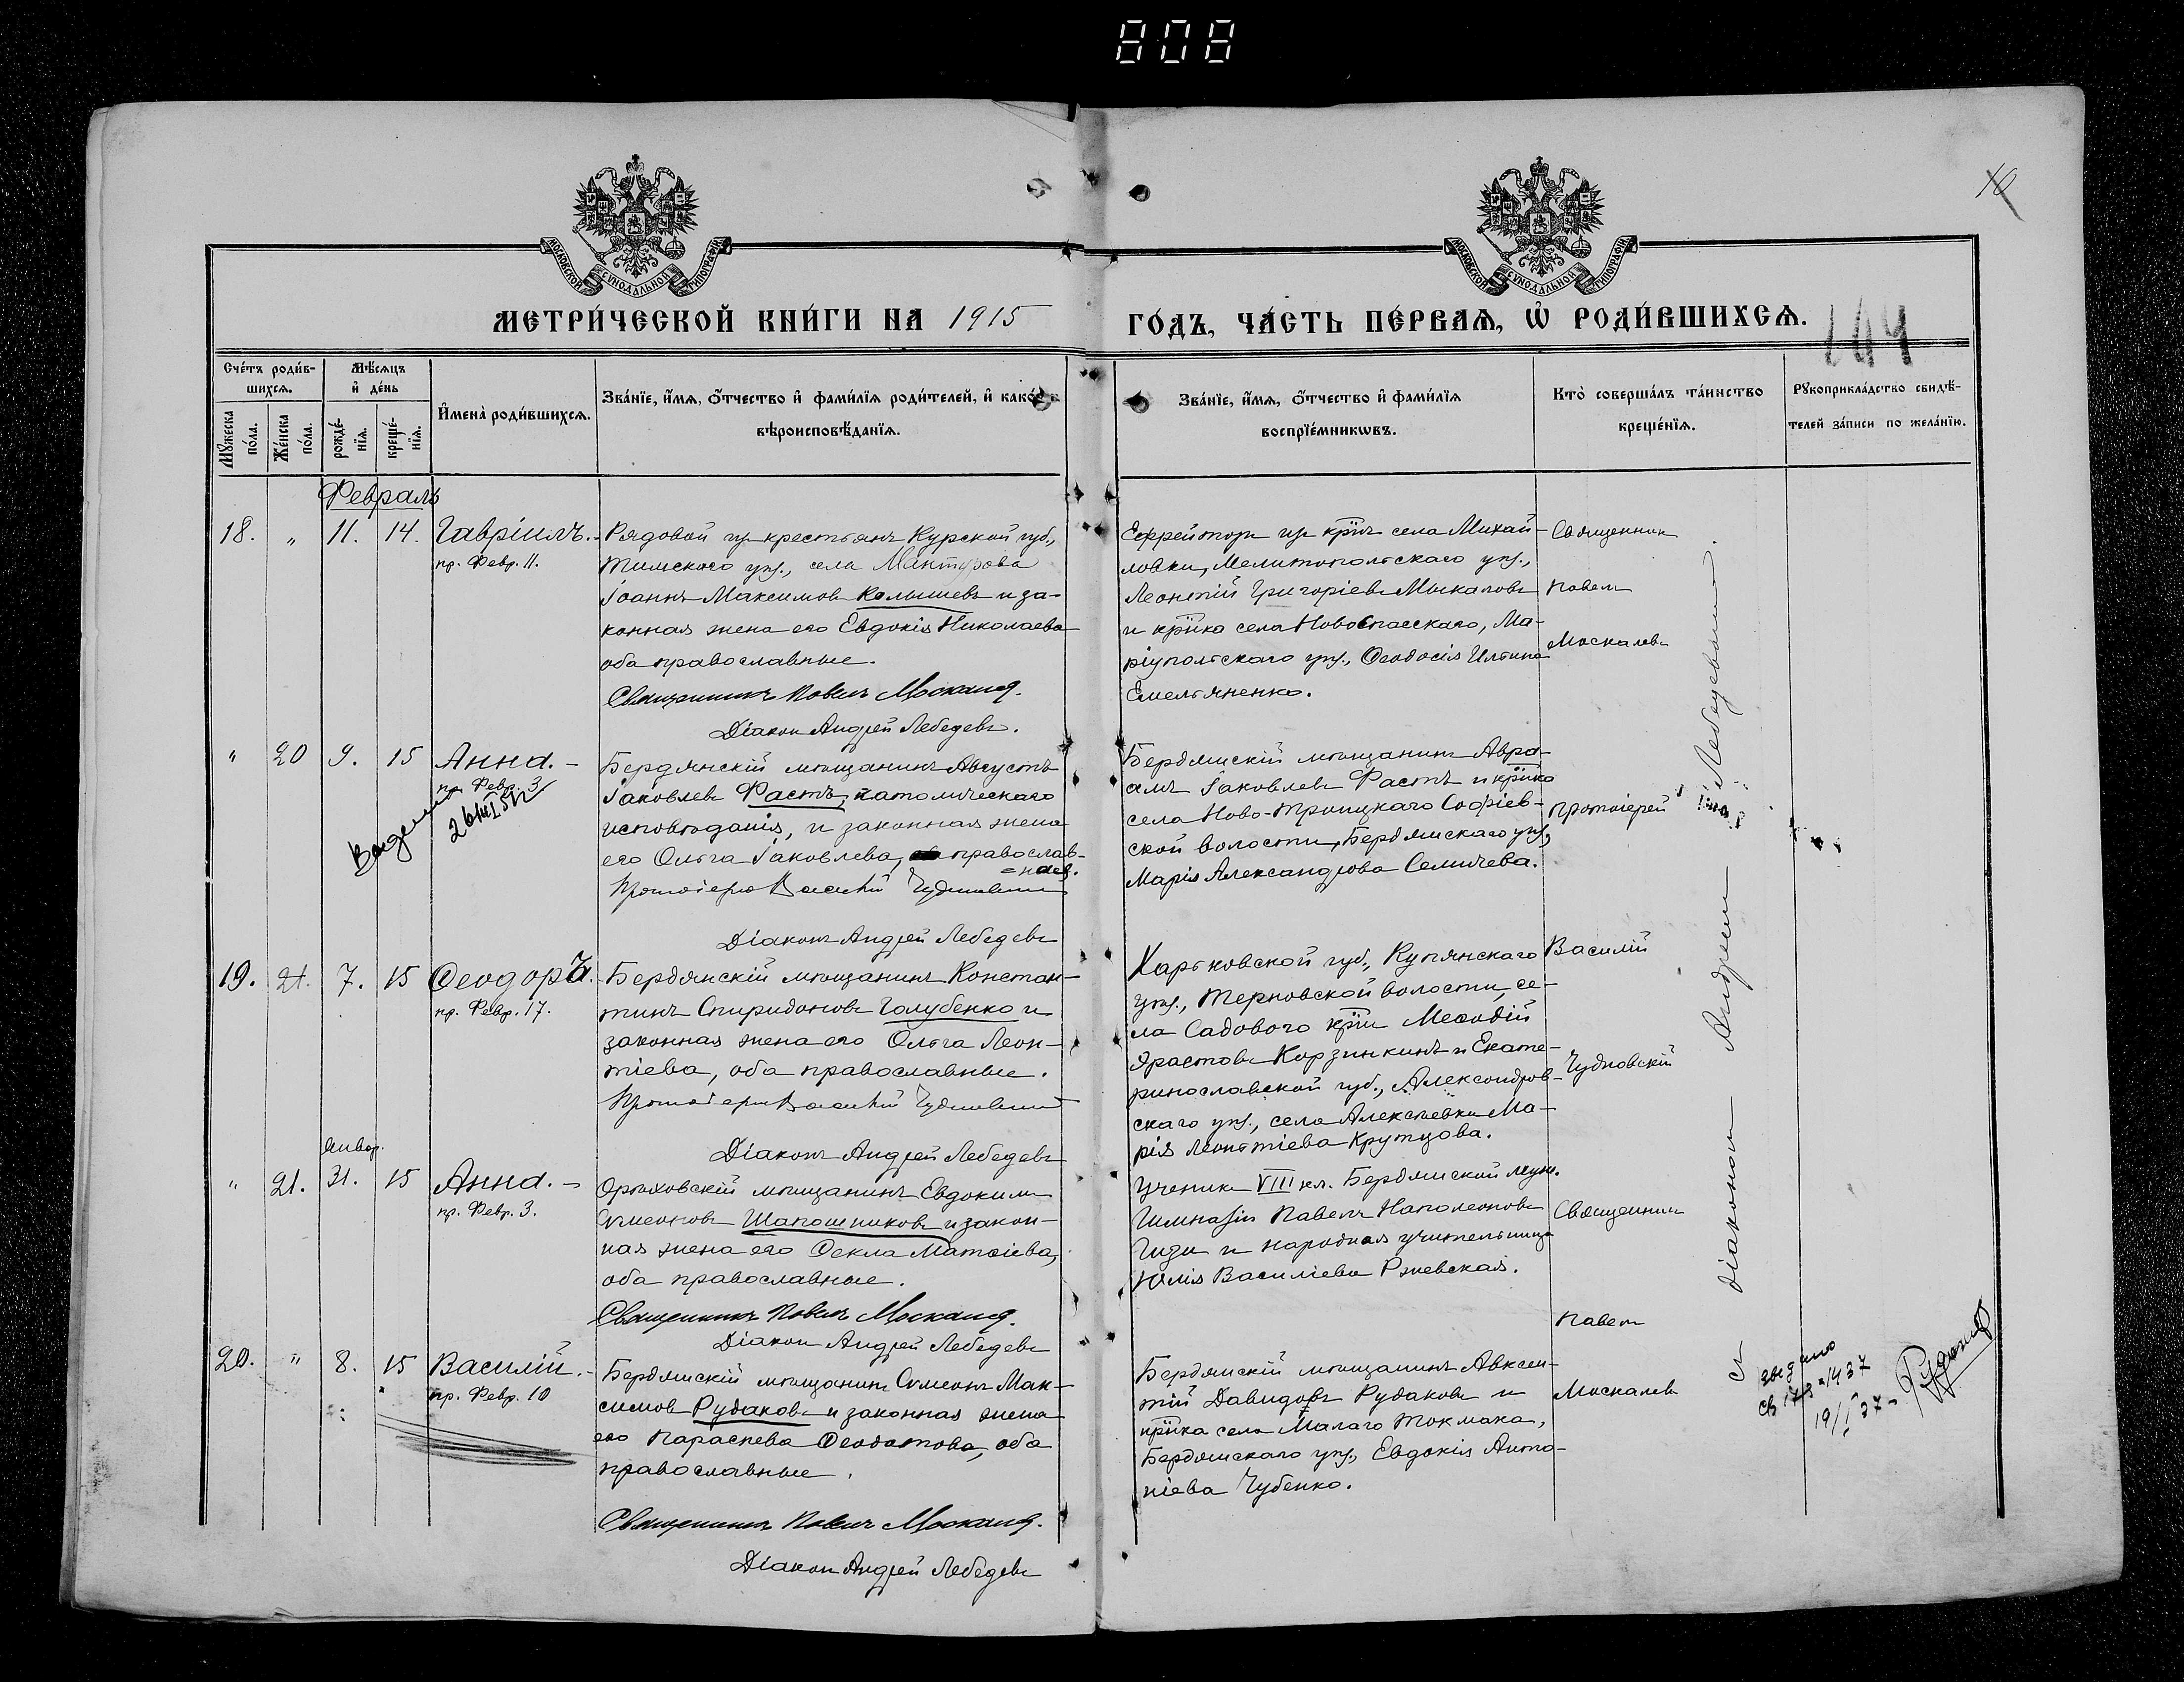 808
10
МОСКОВСКОЙ СѴНОДАЛЬНОЙ ТИПОГРАФІИ
МОСКОВСКОЙ СѴНОДАЛЬНОЙ ТИПОГРАФІИ
МЕТРИ́ЧЕСКОЙ КНИ́ГИ НА 1915
ГО́ДЪ, ЧА́СТЬ ПЕ́РВАѦ, Ѡ҆ РОДИ́ВШИХСѦ.
144
Сче́тъ роди́в-
шихсѧ.
Мѣ́сѧцъ
и҆ де́нь
Мꙋ́жеска
по́ла.
Же́нска
по́ла.
рожде́-
нїѧ.
креще́-
нїѧ.
И҆мена̀ роди́вшихсѧ.
Зва́нїе, и҆́мѧ, ѻ҆́тчество и҆ фами́лїѧ роди́телей, и҆ како́гѡ
вѣроисповѣ́данїѧ.
Зва́нїе, и҆́мѧ, ѻ҆́тчество и҆ фами́лїѧ
воспрїе́мникѡвъ.
Кто̀ соверша́лъ та́инство
креще́нїѧ.
Рꙋкоприкла́дство свидѣ́-
телей за́писи по жела́нїю.
Февраль
18. „ 11. 14. Гавріилъ.
пр. Февр. 11.
Рядовой из крестьянъ Курской губ.,
Тимскаго уѣз., села Мантурова
Іоаннъ Максимовъ Колышевъ и за-
конная жена его Евдокія Николаева
оба православные.
Священникъ Павелъ Москалев.
Діаконъ Андрей Лебедевъ.
Ефрейторъ из кр̄нъ села Михай-
ловки, Мелитопольскаго уѣз.,
Леонтій Григоріевъ Мыкаловъ
и кр̄нка села Новоспасскаго, Ма-
ріупольскаго уѣз., Ѳеодосія Ильина
Емельяненко.
Священник
Павел
Москалевъ
„ 20 9. 15 Анна. -
пр. Февр. 3
26/III 51г
Бердянскій мѣщанинъ Августъ
Іаковлевъ Фастъ, католическаго
исповѣданія, и законная жена
его Ольга Іаковлева, православ-
=ная.
Протоіерей Василій Чудновскій
Діаконъ Андрей Лебедевъ
Бердянскій мѣщанинъ Авра-
амъ Іаковлевъ Фастъ и кр̄нка
села Ново-Троицкаго Софіев-
ской волости, Бердянскаго уѣз,
Марія Александрова Семичева.
Протоіерей
Василій
Чудновскій
19. 21. 7. 15 Ѳеодоръ.
пр. Февр. 17.
Бердянскій мѣщанинъ Констан-
тинъ Спиридоновъ Голубенко и
законная жена его Ольга Леон-
тіева, оба православные.
Протоіерей Василій Чудновскій
Діаконъ Андрей Лебедевъ
Харьковской губ., Купянскаго
уѣз., Терновской волости, се-
ла Садового кр̄нъ Меѳодій
Эрастовъ Корзинкинъ и Екате-
ринославской губ., Александров-
скаго уѣз., села Алексѣевки Ма-
рія Леонтіева Крутцова.
Январ.
„ 21. 31. 15 Анна. -
пр. Февр. 3.
Орѣховскій мѣщанинъ Евдокимъ
Сѵмеоновъ Шапошниковъ и закон-
ная жена его Ѳекла Матѳіева,
оба православные.
Священникъ Павелъ Москалев.
Діаконъ Андрей Лебедевъ
Ученикъ VIII кл. Бердянской муж.
Гимназіи Павелъ Наполеоновъ
Гизи и народная учительница
Юлія Василіева Ржевская.
Священник
Павел
Москалев
20. „ 8. 15 Василій.
пр. Февр. 10
Бердянскій мѣщанинъ Сѵмеонъ Мак-
симовъ Рудаковъ и законная жена
его Параскева Ѳеодотова, оба
православные.
Священникъ Павелъ Москалев.
Діаконъ Андрей Лебедевъ
Бердянскій мѣщанинъ Авксен-
тій Давидовъ Рудаковъ и
кр̄нка села Малаго Токмака,
Бердянскаго уѣз, Евдокія Анто-
ніева Чубенко.
съ діакономъ Андреем Лебедевым.
19/I 37